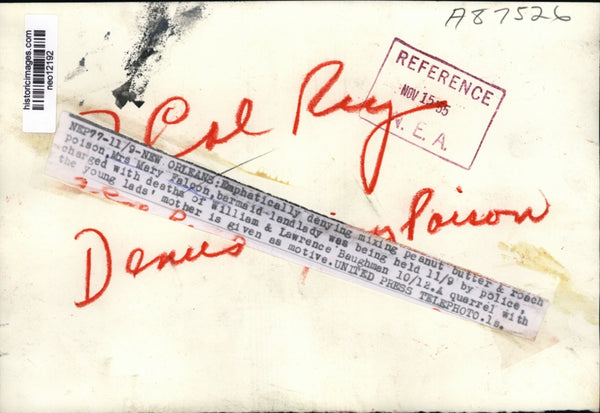 A87526
historicimages.com
neo12192
REFERENCE
NOV 15 55
N. E. A.
Col
NEP77-11/9-NEW ORLEANS:Emphatically denying mixing peanut butter & roach
poison,Mrs Mary Falcon,barmaid-landlady was being held 11/9 by police,
charged with deaths of William & Lawrence Baughman 10/12.A quarrel with
the young lads' mother is given as motive.UNITED PRESS TELEPHOTO.ls.
Poison
Denies